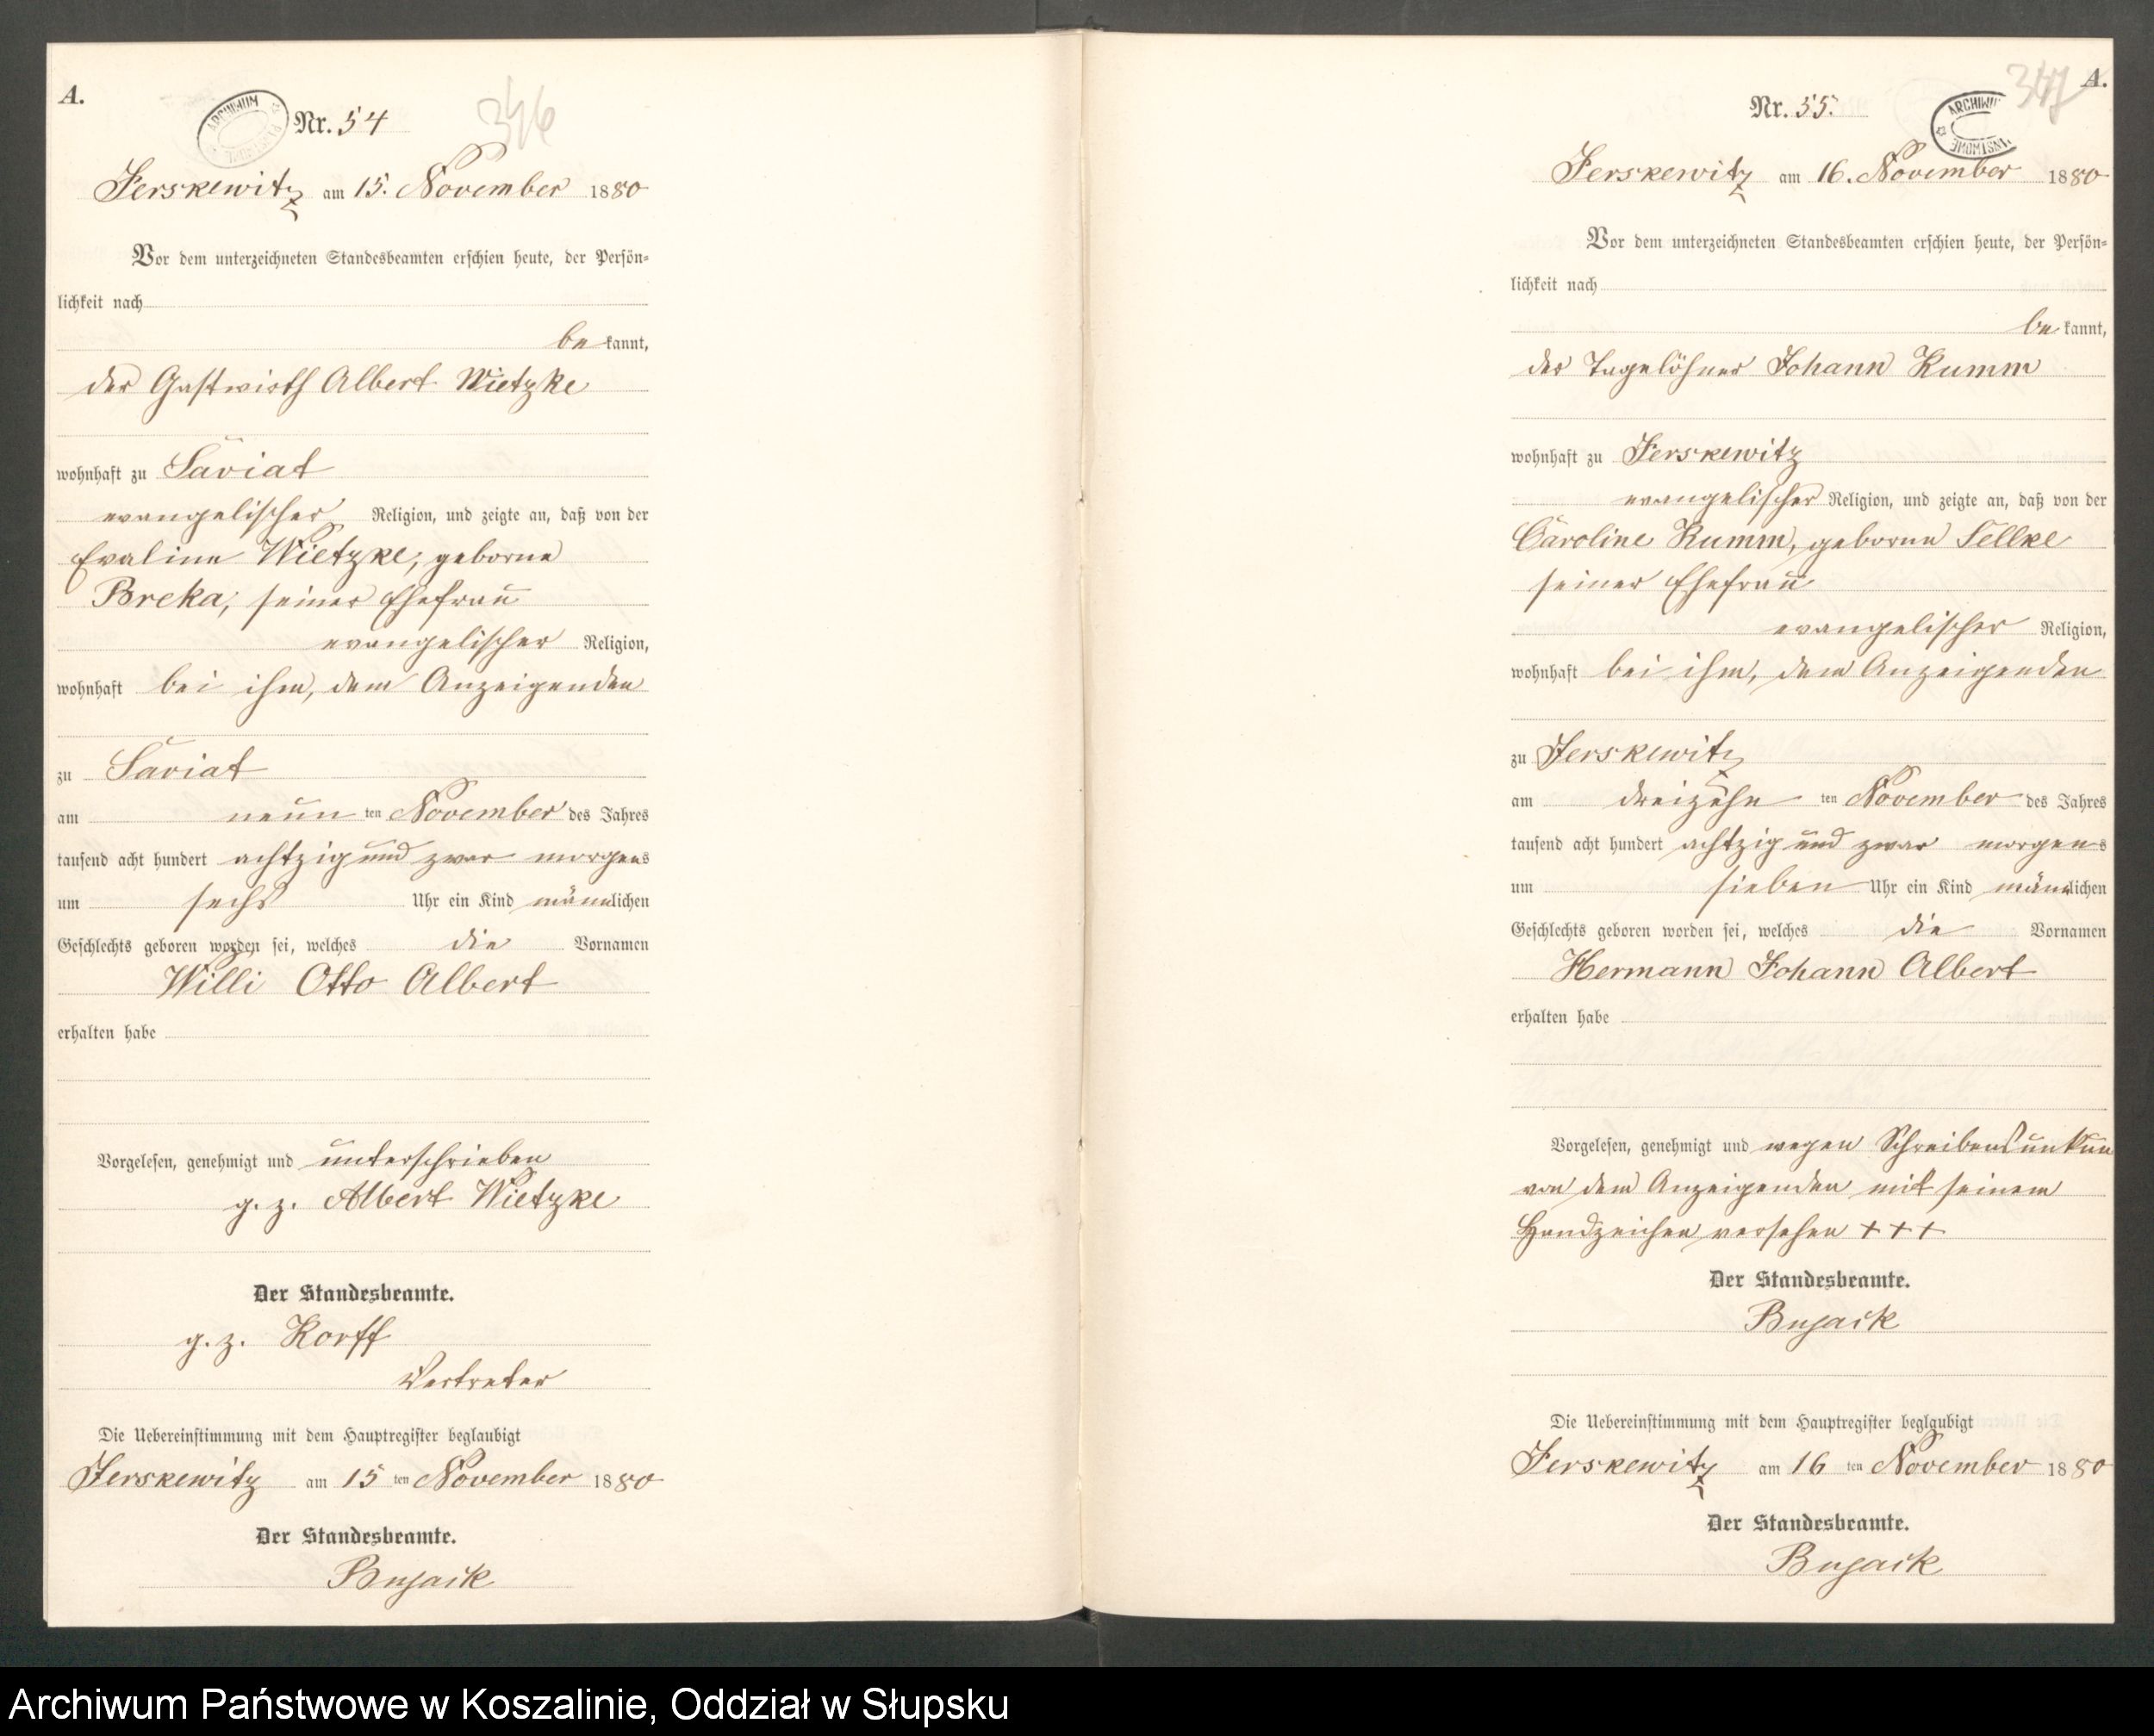 A.
ARCHIWUM PAŃSTWOWE
Nr. 54
346
Jerskewitz am 15. November 1880
Vor dem unterzeichneten Standesbeamten erschien heute, der Persön-
lichkeit nach
be kannt,
der Gastwirth Albert Wietzke
wohnhaft zu Saviat
evangelischer Religion, und zeigte an, daß von der
Evaline Wietzke, geborne
Breka, seiner Ehefrau
evangelischer Religion,
wohnhaft bei ihm, dem Anzeigenden
zu Saviat
am neun ten November des Jahres
tausend acht hundert achtzig und zwar morgens
um sechs Uhr ein Kind männlichen
Geschlechts geboren worden sei, welches die Vornamen
Willi Otto Albert
erhalten habe
Vorgelesen, genehmigt und unterschrieben
g. z. Albert Wietzke
Der Standesbeamte.
g. z. Korff
Vertreter
Die Uebereinstimmung mit dem Hauptregister beglaubigt
Jerskewitz am 15 ten November 1880
Der Standesbeamte.
Bujack
A.
347
Nr. 55.
ARCHIWUM PAŃSTWOWE
Jerskewitz am 16. November 1880
Vor dem unterzeichneten Standesbeamten erschien heute, der Persön-
lichkeit nach
be kannt,
der Tagelöhner Johann Kumm
wohnhaft zu Jerskewitz
evangelischer Religion, und zeigte an, daß von der
Caroline Kumm, geborne Sellke
seiner Ehefrau
evangelischer Religion,
wohnhaft bei ihm, dem Anzeigenden
zu Jerskewitz
am dreizehn ten November des Jahres
tausend acht hundert achtzig und zwar morgens
um sieben Uhr ein Kind männlichen
Geschlechts geboren worden sei, welches die Vornamen
Hermann Johann Albert
erhalten habe
Vorgelesen, genehmigt und wegen Schreibensunkun
von dem Anzeigenden mit seinem
Handzeichen versehen + + +
Der Standesbeamte.
Bujack
Die Uebereinstimmung mit dem Hauptregister beglaubigt
Jerskewitz am 16 ten November 1880
Der Standesbeamte.
Bujack
Archiwum Państwowe w Koszalinie, Oddział w Słupsku